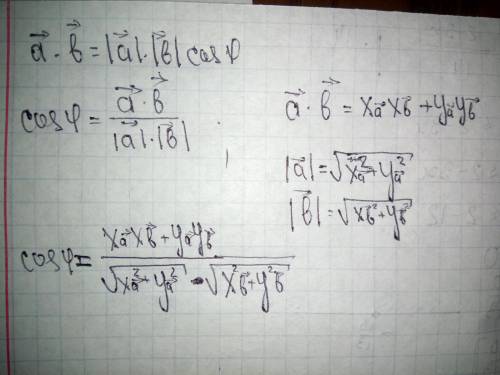 a⃗ · b⃗ = |a⃗| · |b⃗| cos φ
cos φ = (a⃗ · b⃗) / (|a⃗| · |b⃗|)
a⃗ · b⃗ = x_a⃗ x_b⃗ + y_a⃗ y_b⃗
|a⃗| = √(x_a⃗² + y_a⃗²)
|b⃗| = √(x_b⃗² + y_b⃗²)
cos φ = (x_a⃗ x_b⃗ + y_a⃗ y_b⃗) / (√(x_a⃗² + y_a⃗²) · √(x²_b⃗ + y²_b⃗))